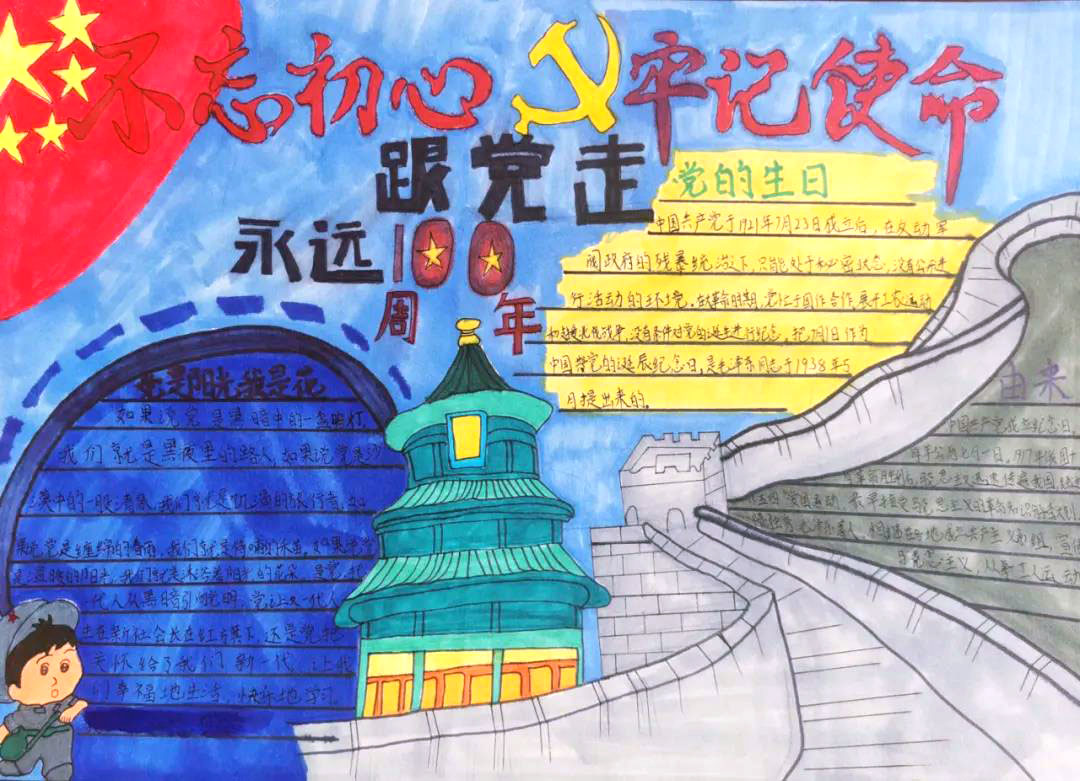 不忘初心 牢记使命
跟党走
永远100
周年
党的生日
中国共产党于1921年7月23日成立后，在反动军
阀政府的残暴统治下，只能处于秘密状态，没有公开进
行活动的环境。在大革命时期，党忙于国共合作，展开工农运动
和北伐战争，没有条件对党的诞生进行纪念，把7月1日作为
中国共党的诞辰纪念日，是毛泽东同志于1938年5
月提出来的。
党是阳光我是花
如果说党是黑暗中的一盏明灯，
我们就是黑夜里的路人，如果说党是沙
漠中的一股清泉，我们就是饥渴的旅行者，如
果说党是绵绵的春雨，我们就是待哺的禾苗，如果说党
是温暖的阳光，我们就是沐浴着阳光的花朵。是党把
一代人从黑暗引向光明，党让又一代人
生在新社会长在红旗下，还是党把
关怀给了我们新一代，让我
们幸福地生活，快乐地学习
由来
中国共产党成立纪念日，
每年公历七月一日，1917年俄国十
月革命胜利后，
五四
马克思主义，从事工人运动